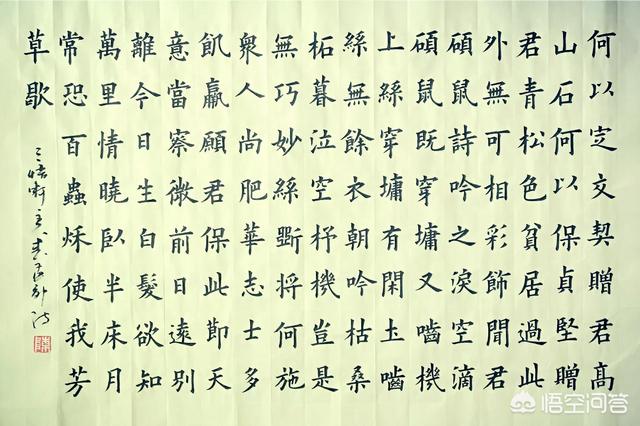 何以定交契贈君高
山石何以保貞堅贈
君青松色貧居過此
外無可相彩飾聞君
碩鼠詩吟之淚空滴
碩鼠既穿墉又嚙機
上絲穿墉有閑土嚙
絲無餘衣朝吟枯桑
柘暮泣空杼機豈是
無巧妙絲斷將何施
衆人尚肥華志士多
飢羸願君保此節天
意當察微前日遠別
離今日生白髮欲知
萬里情曉臥半床月
常恐百蟲秌使我芳
草歇
悟空问答